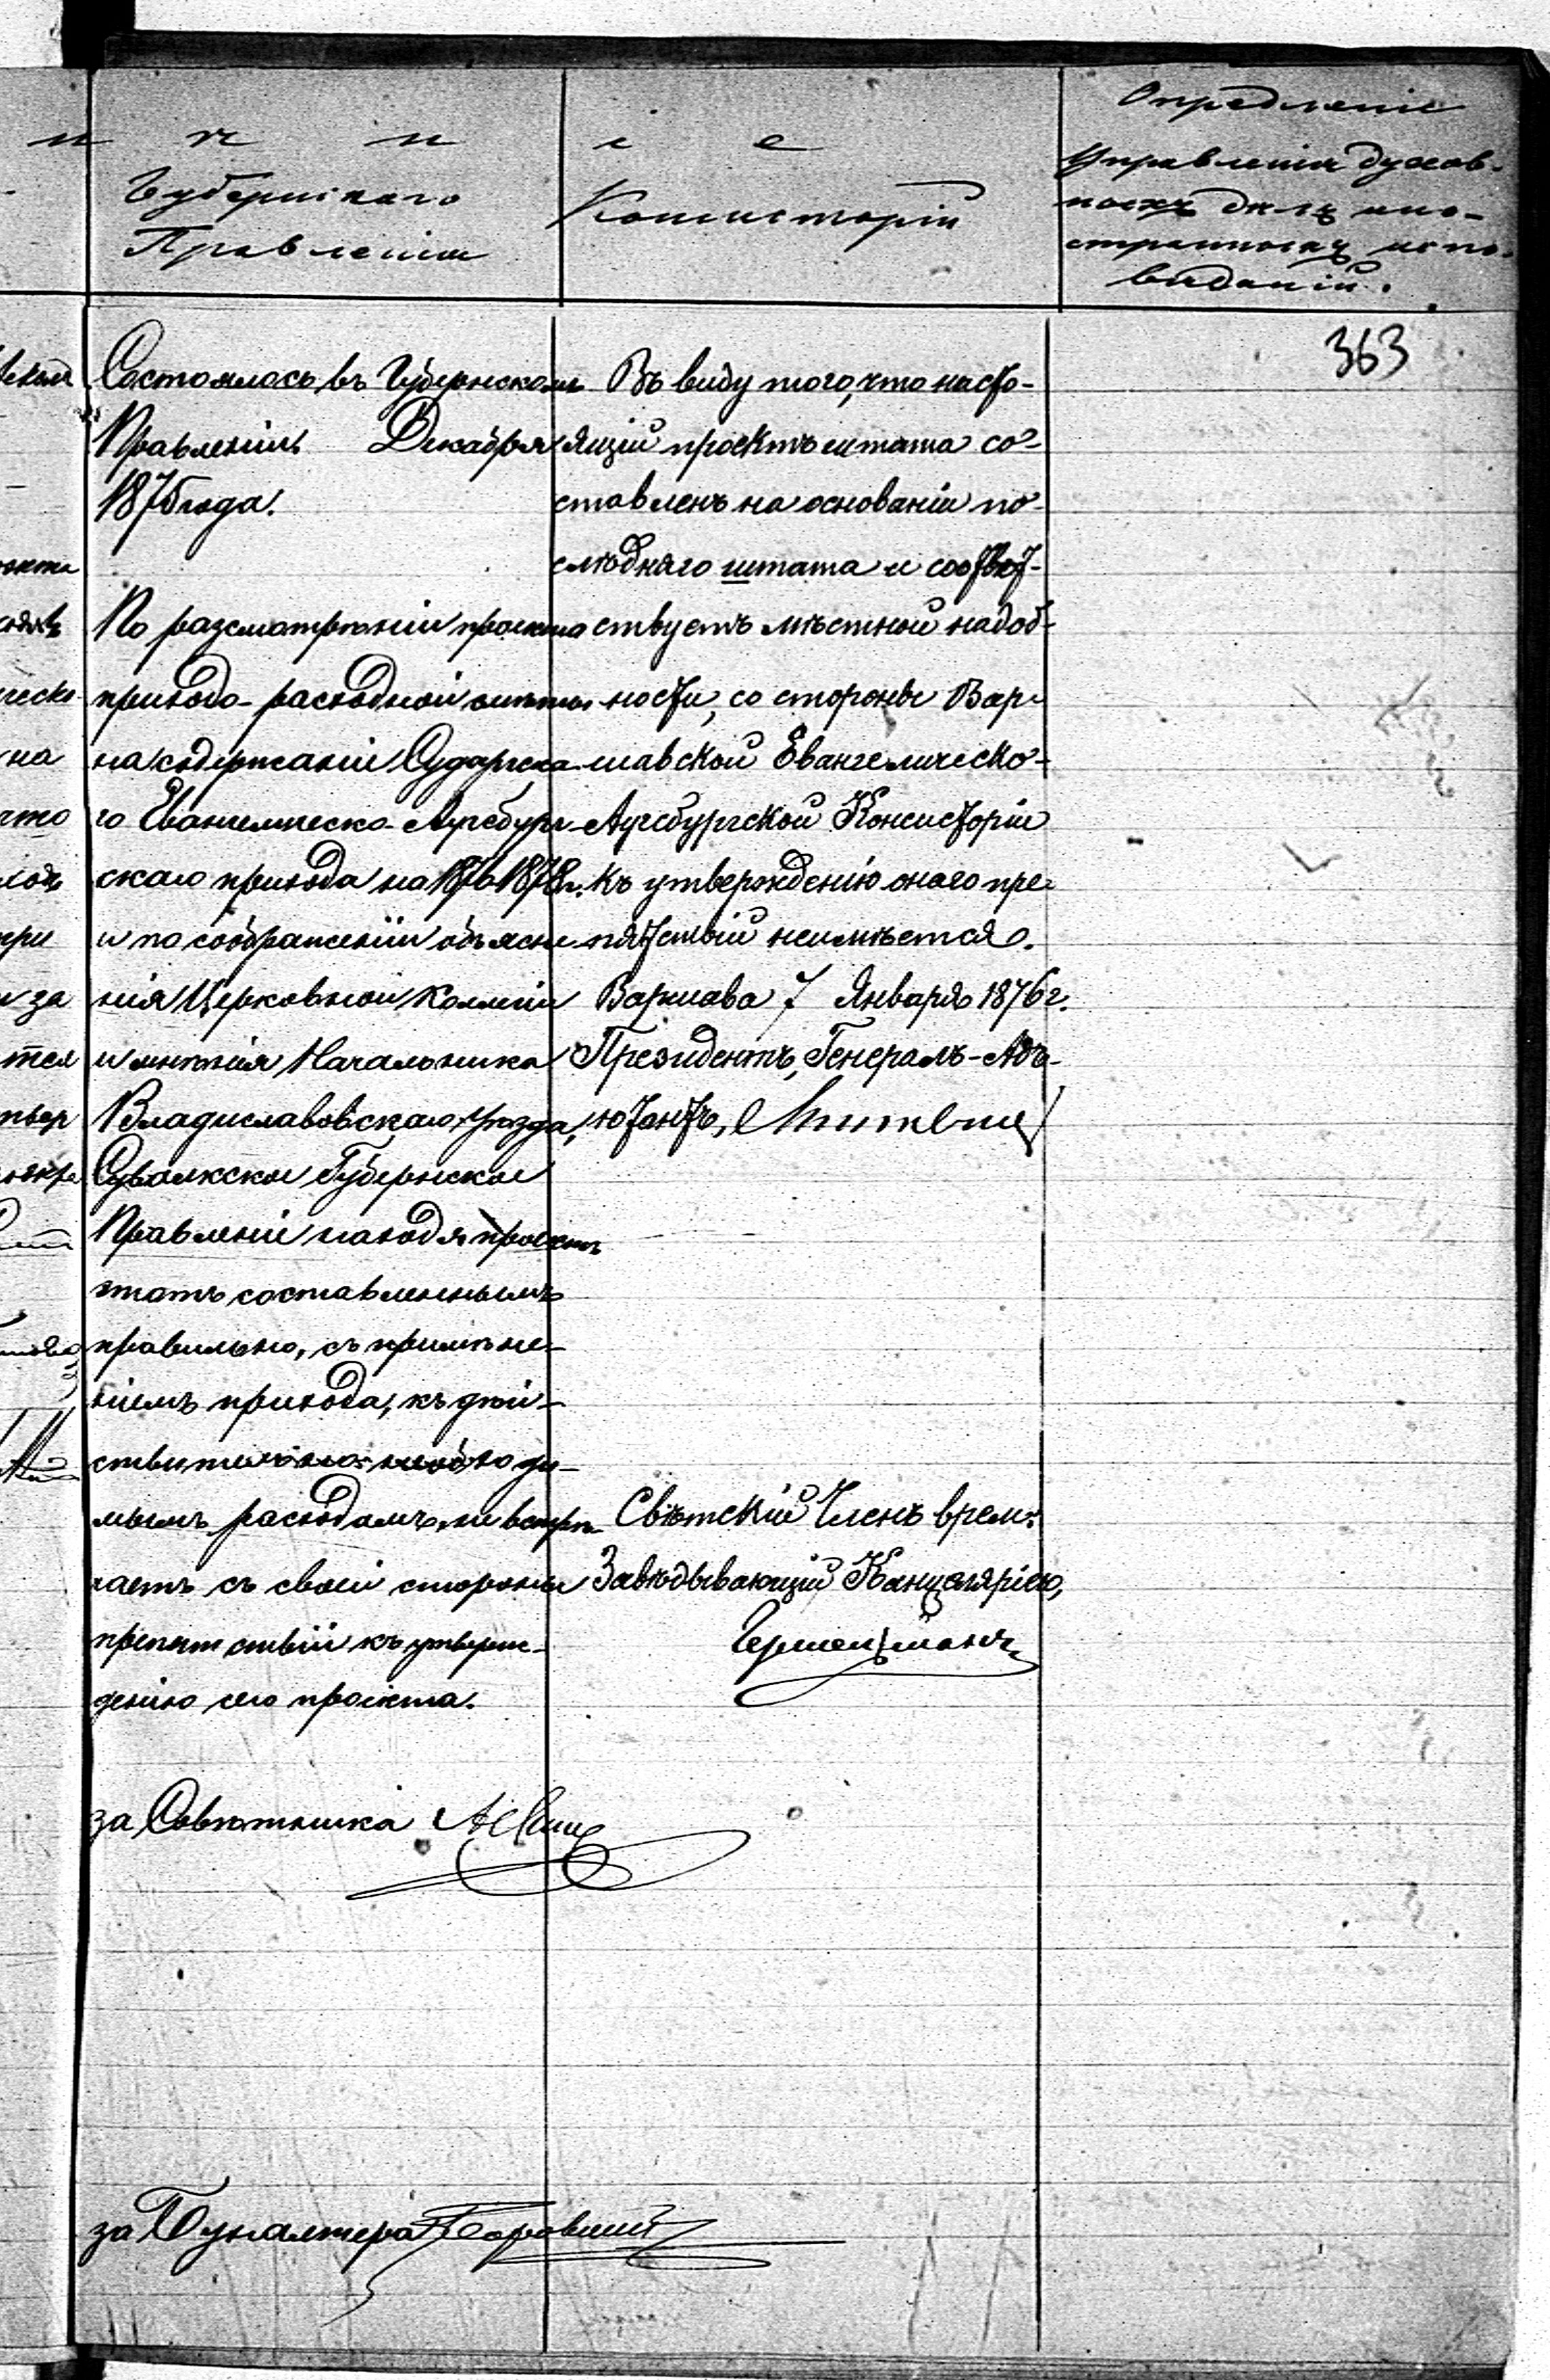 н ч н і е
Губернскаго
Правленія
Консисторіи
Опредленіе
Управленія духов-
ныхъ дѣлъ ино-
странныхъ испо-
вѣданій.
363
Состоялось въ Губернскомъ
Правленіи Декабря
1875 года.
По разсмотрѣніи проекта
приходо-расходной смѣты
на содержаніе Сударгска-
го Евангелическо-Аугсбург-
скаго прихода на 1876/1878 г.
и по соображеніи объясне
нія Церковной Коллегіи
и мнѣнія Начальника
Владиславовскаго уѣзда,
Сувалкское Губернское
Правленіе находя проектъ
этотъ составленнымъ
правильно, съ примѣне-
ніемъ прихода, къ дѣй-
ствительно необходи-
мымъ расходамъ, не встрѣ-
чаетъ съ своей стороны
препятствій къ утверж-
денію сего проекта.
за Совѣтника
за Бухгалтера
Въ виду того, что насто-
ящій проектъ штата со-
ставленъ на основаніи по-
слѣдняго штата и соотвѣт-
ствуетъ мѣстной надоб-
ности, со стороны Вар-
шавской Евангелическо-
Аугсбургской Консисторіи
къ утвержденію онаго пре-
пятствій неимѣется.
Варшава 7 Января 1876 г.
Президентъ, Генералъ-Адъ-
ютантъ,
Свѣтскій Членъ врем:
Завѣдывающій Канцеляріею,